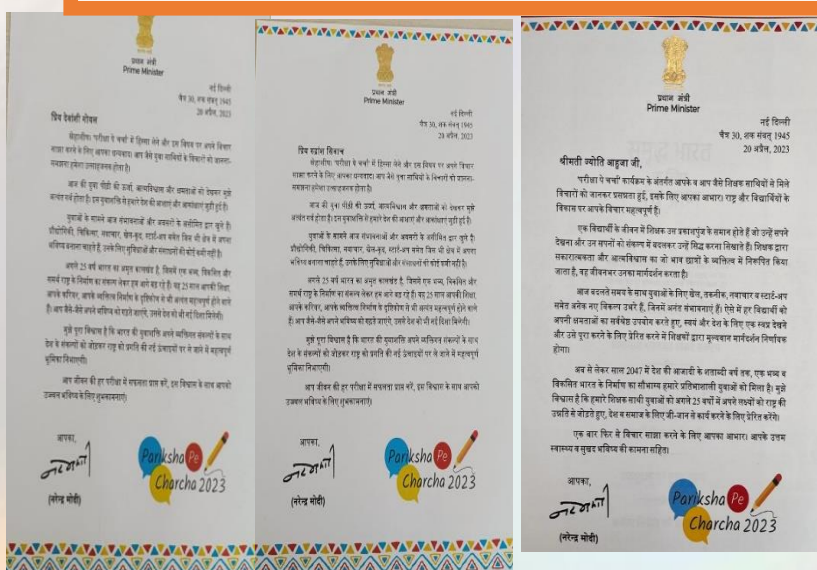 प्रधान मंत्री
Prime Minister
नई दिल्ली
चैत्र 30, शक संवत् 1945
20 अप्रैल, 2023
प्रिय देवांशी गोयल
स्नेहाशीष। 'परीक्षा पे चर्चा' में हिस्सा लेने और इस विषय पर अपने विचार
साझा करने के लिए आपका धन्यवाद। आप जैसे युवा साथियों के विचारों को जानना-
समझना हमेशा उत्साहजनक होता है।
आज की युवा पीढ़ी की ऊर्जा, आत्मविश्वास और क्षमताओं को देखकर मुझे
अत्यंत गर्व होता है। इस युवाशक्ति से हमारे देश की आशाएं और आकांक्षाएं जुड़ी हुई हैं।
युवाओं के सामने आज संभावनाओं और अवसरों के असीमित द्वार खुले हैं।
प्रौद्योगिकी, चिकित्सा, नवाचार, खेल-कूद, स्टार्ट-अप समेत जिस भी क्षेत्र में अपना
भविष्य बनाना चाहते हैं, उनके लिए सुविधाओं और संसाधनों की कोई कमी नहीं है।
अगले 25 वर्ष भारत का अमृत कालखंड है, जिसमें एक भव्य, विकसित और
समर्थ राष्ट्र के निर्माण का संकल्प लेकर हम आगे बढ़ रहे हैं। यह 25 साल आपकी शिक्षा,
आपके करियर, आपके व्यक्तित्व निर्माण के दृष्टिकोण से भी अत्यंत महत्वपूर्ण होने वाले
हैं। आप जैसे-जैसे अपने भविष्य को गढ़ते जाएंगे, उससे देश को भी नई दिशा मिलेगी।
मुझे पूरा विश्वास है कि भारत की युवाशक्ति अपने व्यक्तिगत संकल्पों के साथ
देश के संकल्पों को जोड़कर राष्ट्र को प्रगति की नई ऊंचाइयों पर ले जाने में महत्वपूर्ण
भूमिका निभाएगी।
आप जीवन की हर परीक्षा में सफलता प्राप्त करें, इस विश्वास के साथ आपको
उज्ज्वल भविष्य के लिए शुभकामनाएं।
आपका,
(नरेन्द्र मोदी)
Pariksha Pe
Charcha 2023
प्रधान मंत्री
Prime Minister
नई दिल्ली
चैत्र 30, शक संवत् 1945
20 अप्रैल, 2023
प्रिय
स्नेहाशीष। 'परीक्षा पे चर्चा' में हिस्सा लेने और इस विषय पर अपने विचार
साझा करने के लिए आपका धन्यवाद। आप जैसे युवा साथियों के विचारों को जानना-
समझना हमेशा उत्साहजनक होता है।
आज की युवा पीढ़ी की ऊर्जा, आत्मविश्वास और क्षमताओं को देखकर मुझे
अत्यंत गर्व होता है। इस युवाशक्ति से हमारे देश की आशाएं और आकांक्षाएं जुड़ी हुई हैं।
युवाओं के सामने आज संभावनाओं और अवसरों के असीमित द्वार खुले हैं।
प्रौद्योगिकी, चिकित्सा, नवाचार, खेल-कूद, स्टार्ट-अप समेत जिस भी क्षेत्र में अपना
भविष्य बनाना चाहते हैं, उनके लिए सुविधाओं और संसाधनों की कोई कमी नहीं है।
अगले 25 वर्ष भारत का अमृत कालखंड है, जिसमें एक भव्य, विकसित और
समर्थ राष्ट्र के निर्माण का संकल्प लेकर हम आगे बढ़ रहे हैं। यह 25 साल आपकी शिक्षा,
आपके करियर, आपके व्यक्तित्व निर्माण के दृष्टिकोण से भी अत्यंत महत्वपूर्ण होने वाले
हैं। आप जैसे-जैसे अपने भविष्य को गढ़ते जाएंगे, उससे देश को भी नई दिशा मिलेगी।
मुझे पूरा विश्वास है कि भारत की युवाशक्ति अपने व्यक्तिगत संकल्पों के साथ
देश के संकल्पों को जोड़कर राष्ट्र को प्रगति की नई ऊंचाइयों पर ले जाने में महत्वपूर्ण
भूमिका निभाएगी।
आप जीवन की हर परीक्षा में सफलता प्राप्त करें, इस विश्वास के साथ आपको
उज्ज्वल भविष्य के लिए शुभकामनाएं।
आपका,
(नरेन्द्र मोदी)
Pariksha Pe
Charcha 2023
प्रधान मंत्री
Prime Minister
नई दिल्ली
चैत्र 30, शक संवत् 1945
20 अप्रैल, 2023
श्रीमती ज्योति आहुजा जी,
'परीक्षा पे चर्चा' कार्यक्रम के अंतर्गत आपके व आप जैसे शिक्षक साथियों से मिले
विचारों को जानकर प्रसन्नता हुई, इसके लिए आपका आभार। राष्ट्र और विद्यार्थियों के
विकास पर आपके विचार महत्वपूर्ण हैं।
एक विद्यार्थी के जीवन में शिक्षक उस प्रकाशपुंज के समान होते हैं जो उन्हें सपने
देखना और उन सपनों को संकल्प में बदलकर उन्हें सिद्ध करना सिखाते हैं। शिक्षक द्वारा
सकारात्मकता और आत्मविश्वास का जो भाव छात्रों के व्यक्तित्व में निरूपित किया
जाता है, वह जीवनभर उनका मार्गदर्शन करता है।
आज बदलते समय के साथ युवाओं के लिए खेल, तकनीक, नवाचार व स्टार्ट-अप
समेत अनेक नए विकल्प उभरे हैं, जिनमें अनंत संभावनाएं हैं। ऐसे में हर विद्यार्थी को
अपनी क्षमताओं का सर्वश्रेष्ठ उपयोग करते हुए, स्वयं और देश के लिए एक स्वप्न देखने
और उसे पूरा करने के लिए प्रेरित करने में शिक्षकों द्वारा मूल्यवान मार्गदर्शन निर्णायक
होगा।
अब से लेकर साल 2047 में देश की आजादी के शताब्दी वर्ष तक, एक भव्य व
विकसित भारत के निर्माण का सौभाग्य हमारे प्रतिभाशाली युवाओं को मिला है। मुझे
विश्वास है कि हमारे शिक्षक साथी युवाओं को अगले 25 वर्षों में अपने लक्ष्यों को राष्ट्र की
उन्नति से जोड़ते हुए, देश व समाज के लिए जी-जान से कार्य करने के लिए प्रेरित करेंगे।
एक बार फिर से विचार साझा करने के लिए आपका आभार। आपके उत्तम
स्वास्थ्य व सुखद भविष्य की कामना सहित।
आपका,
(नरेन्द्र मोदी)
Pariksha Pe
Charcha 2023